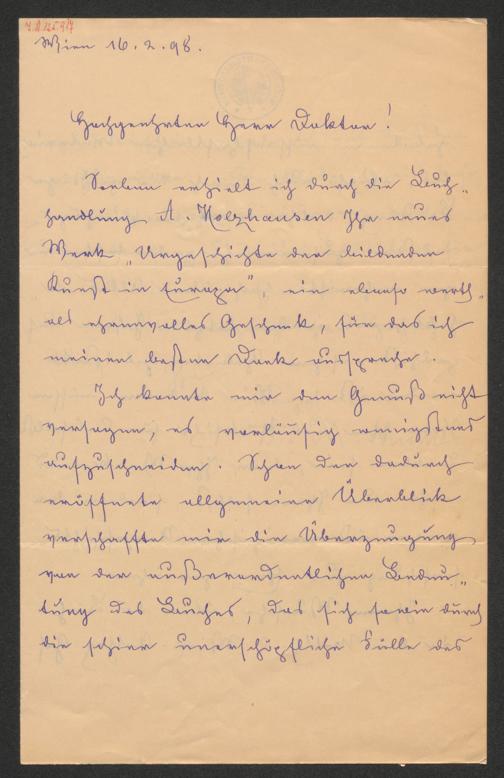 Wien 16.2.98.
Hochgeehrter Herr Doktor!
Soeben erhielt ich durch die Buch-
handlung A. Holzhausen Ihr neues
Werk „Urgeschichte der bildenden
Kunst in Europa", ein ebenso werth-
als ehrenvolles Geschenk, für das ich
meinen besten Dank ausspreche.
Ich konnte mir den Genuß nicht
versagen, es vorläufig wenigstens
aufzuschneiden. Schon der dadurch
eröffnete allgemeine Überblick
verschaffte mir die Überzeugung
von der außerordentlichen Bedeu-
tung des Buches, das sich sowie durch
die schier unerschöpfliche Fülle des